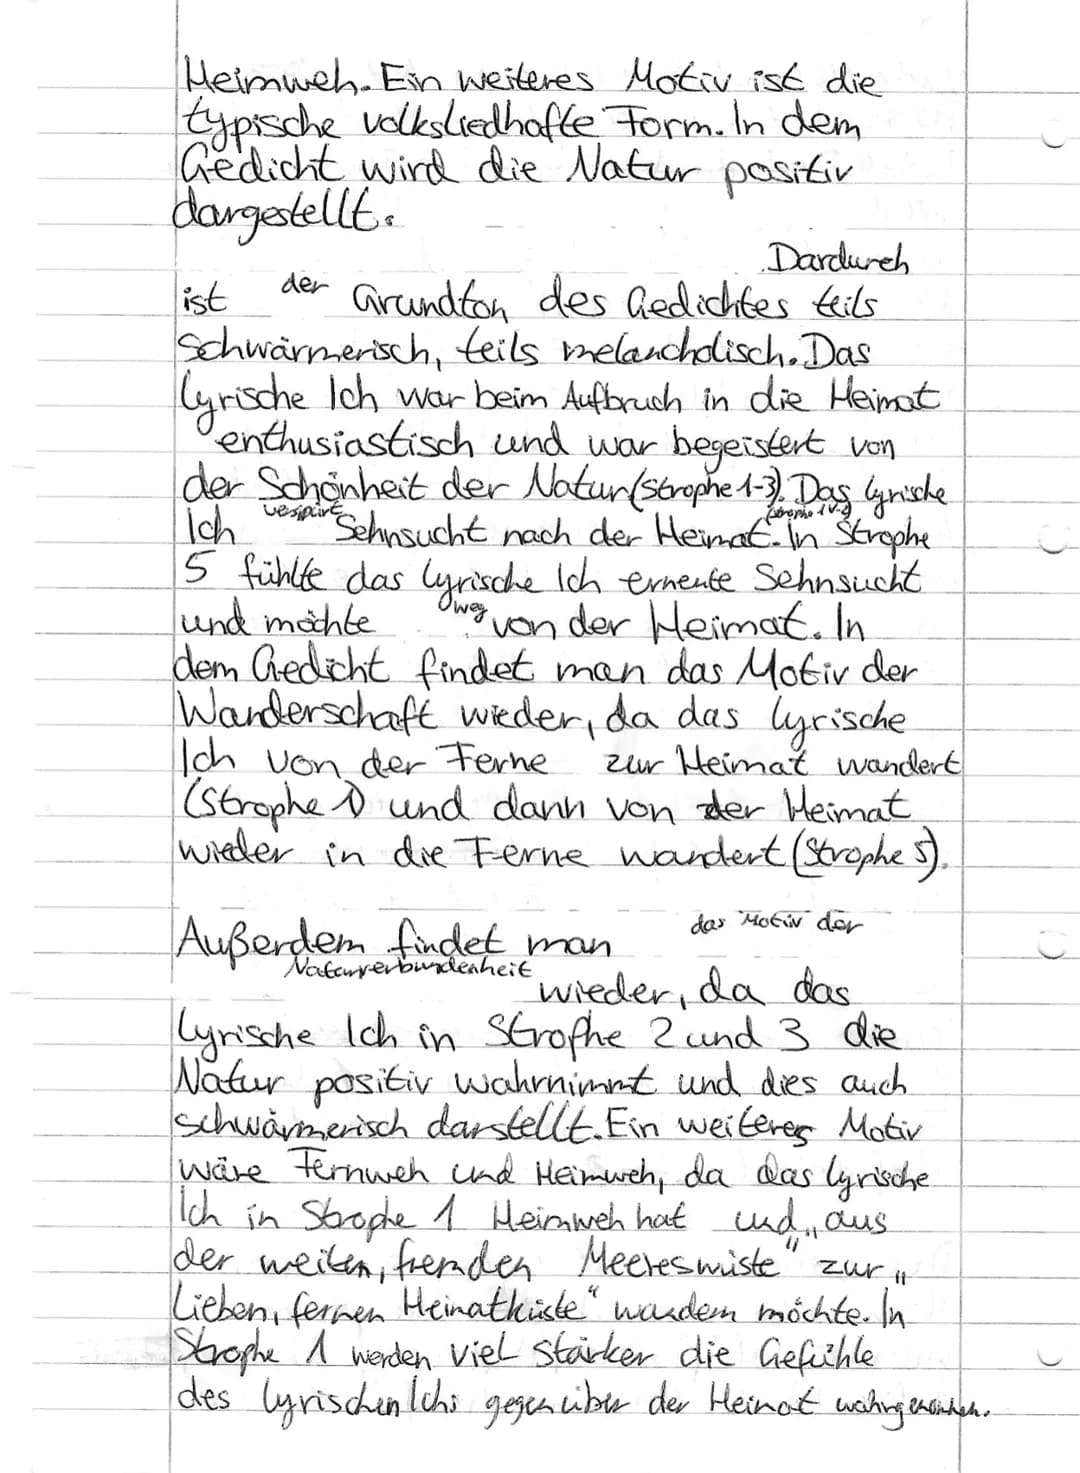 Heimweh. Ein weiteres Motiv ist die
typische volksliedhafte Form. In dem
Gedicht wird die Natur positiv
dargestellt.
Dardurch
ist der Grundton des Gedichtes teils
schwärmerisch, teils melancholisch. Das
lyrische Ich war beim Aufbruch in die Heimat
enthusiastisch und war begeistert von
der Schönheit der Natur (Strophe 1-3). Das lyrische
Ich verspürt Sehnsucht nach der Heimat. In Strophe
5 fühlte das lyrische Ich erneute Sehnsucht
und möchte weg von der Heimat. In
dem Gedicht findet man das Motiv der
Wanderschaft wieder, da das lyrische
Ich von der Ferne zur Heimat wandert
(Strophe 1) und dann von der Heimat
wieder in die Ferne wandert (Strophe 5).
Außerdem findet man das Motiv der
Naturverbundenheit
wieder, da das
lyrische Ich in Strophe 2 und 3 die
Natur positiv wahrnimmt und dies auch
schwärmerisch darstellt. Ein weiteres Motiv
wäre Fernweh und Heimweh, da das lyrische
Ich in Strophe 1 Heimweh hat und „aus
der weiten, fremden Meereswüste" zur „
Lieben, fernen Heimatküste" wandern möchte. In
Strophe 1 werden viel stärker die Gefühle
des lyrischen Ichs gegenüber der Heimat wahrgenommen.